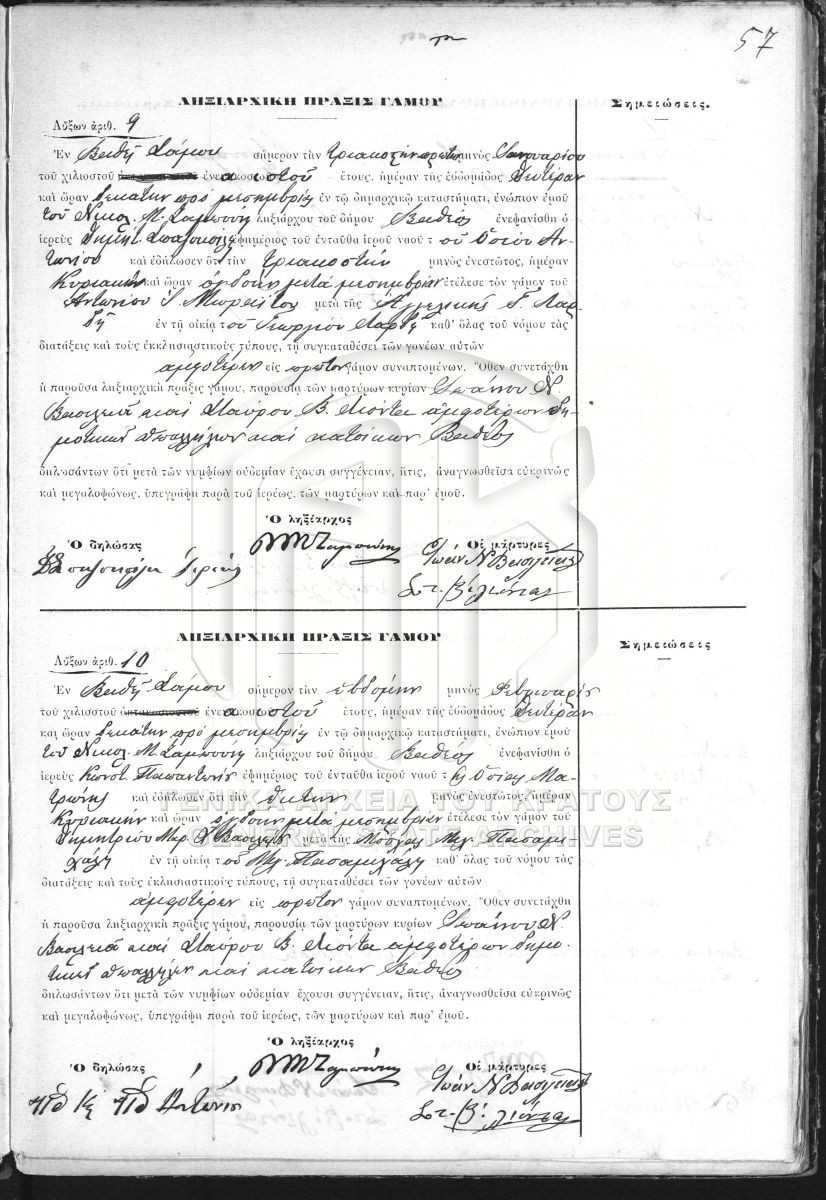 57
ΛΗΞΙΑΡΧΙΚΗ ΠΡΑΞΙΣ ΓΑΜΟΥ
Σημειώσεις.
Αὔξων ἀριθ. 9
Ἐν Βαθεῖ Σάμου σήμερον τὴν τριακοστὴν πρώτην μηνὸς Ἰανουαρίου
τοῦ χιλιοστοῦ ὀκτακοσιοστοῦ ἐνεακοσιοστοῦ α ἔτους, ἡμέραν τῆς ἑβδομάδος Δευτέραν
καὶ ὥραν δεκάτην πρὸ μεσημβρίας ἐν τῷ δημαρχικῷ καταστήματι, ἐνώπιον ἐμοῦ
τοῦ Νικολ. Μ. ληξιάρχου τοῦ δήμου Βαθέος ἐνεφανίσθη ὁ
ἱερεὺς Δημήτ. ἐφημέριος τοῦ ἐνταῦθα ἱεροῦ ναοῦ τοῦ Ὁσίου Ἀν-
τωνίου καὶ ἐδήλωσεν ὅτι τὴν τριακοστὴν μηνὸς ἐνεστῶτος, ἡμέραν
Κυριακὴν καὶ ὥραν ὀγδόην μετὰ μεσημβρίαν ἐτέλεσε τὸν γάμον τοῦ
Ἀντωνίου Ἰ. μετὰ τῆς Ἀγγελικῆς Γ. Λαρ-
δῆ ἐν τῇ οἰκίᾳ τοῦ Γεωργίου Λαρδῆ καθ' ὅλας τοῦ νόμου τὰς
διατάξεις καὶ τοὺς ἐκκλησιαστικοὺς τύπους, τῇ συγκαταθέσει τῶν γονέων αὐτῶν
ἀμφοτέρων εἰς πρῶτον γάμον συναπτομένων. Ὅθεν συνετάχθη
ἡ παροῦσα ληξιαρχικὴ πρᾶξις γάμου, παρουσίᾳ τῶν μαρτύρων κυρίων Ἰωάννου Ν.
Βασιλειᾶ καὶ Σταύρου Β. Λιόντα ἀμφοτέρων δη-
μοτικῶν ὑπαλλήλων καὶ κατοίκων Βαθέος
δηλωσάντων ὅτι μετὰ τῶν νυμφίων οὐδεμίαν ἔχουσι συγγένειαν, ἥτις, ἀναγνωσθεῖσα εὐκρινῶς
καὶ μεγαλοφώνως, ὑπεγράφη παρὰ τοῦ ἱερέως, τῶν μαρτύρων καὶ παρ' ἐμοῦ.
Ὁ δηλώσας
Ὁ ληξίαρχος
Οἱ μάρτυρες
Ἰωάν Ν Βασιλειᾶς
Στ. Β. Λιόντας
ΛΗΞΙΑΡΧΙΚΗ ΠΡΑΞΙΣ ΓΑΜΟΥ
Σημειώσεις
Αὔξων ἀριθ. 10
Ἐν Βαθεῖ Σάμου σήμερον τὴν ἑβδόμην μηνὸς Φεβρουαρίου
τοῦ χιλιοστοῦ ὀκτακοσιοστοῦ ἐνεακοσιοστοῦ α ἔτους, ἡμέραν τῆς ἑβδομάδος Δευτέραν
καὶ ὥραν δεκάτην πρὸ μεσημβρίας ἐν τῷ δημαρχικῷ καταστήματι, ἐνώπιον ἐμοῦ
τοῦ Νικολ. Μ. ληξιάρχου τοῦ δήμου Βαθέος ἐνεφανίσθη ὁ
ἱερεὺς Κωνστ. Παπαντωνίου ἐφημέριος τοῦ ἐνταῦθα ἱεροῦ ναοῦ τῆς Ὁσίας Μα-
τρώνης καὶ ἐδήλωσεν ὅτι τὴν ἕκτην μηνὸς ἐνεστῶτος, ἡμέραν
Κυριακὴν καὶ ὥραν ὀγδόην μετὰ μεσημβρίαν ἐτέλεσε τὸν γάμον τοῦ
Δημητρίου μετὰ τῆς Μόσχας Μιχ. Παπαμι-
χάλη ἐν τῇ οἰκίᾳ τοῦ Μιχ. Παπαμιχάλη καθ' ὅλας τοῦ νόμου τὰς
διατάξεις καὶ τοὺς ἐκλησιαστικοὺς τύπους, τῇ συγκαταθέσει τῶν γονέων αὐτῶν
ἀμφοτέρων εἰς πρῶτον γάμον συναπτομένων. Ὅθεν συνετάχθη
ἡ παροῦσα ληξιαρχικὴ πρᾶξις γάμου, παρουσίᾳ τῶν μαρτύρων κυρίων Ἰωάννου Ν.
Βασιλειᾶ καὶ Σταύρου Β. Λιόντα ἀμφοτέρων δημο-
τικῶν ὑπαλλήλων καὶ κατοίκων Βαθέος
δηλωσάντων ὅτι μετὰ τῶν νυμφίων οὐδεμίαν ἔχουσι συγγένειαν, ἥτις, ἀναγνωσθεῖσα εὐκρινῶς
καὶ μεγαλοφώνως, ὑπεγράφη παρὰ τοῦ ἱερέως, τῶν μαρτύρων καὶ παρ' ἐμοῦ.
Ὁ δηλώσας
Ὁ ληξίαρχος
Οἱ μάρτυρες
Ἰωάν Ν Βασιλειᾶς
Στ. Β. Λιόντας
ΓΕΝΙΚΑ ΑΡΧΕΙΑ ΤΟΥ ΚΡΑΤΟΥΣ
GENERAL STATE ARCHIVES